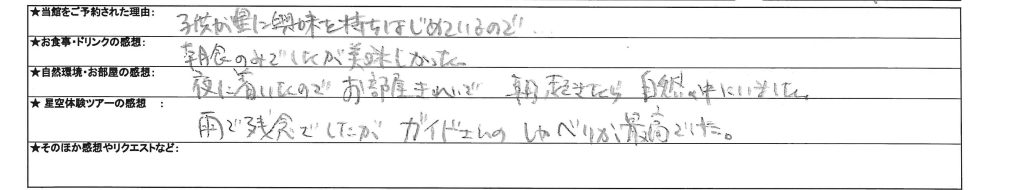 ★当館をご予約された理由: 子供が星に興味を持ちはじめているので
★お食事・ドリンクの感想: 朝食のみでしたが美味しかった。
★自然環境・お部屋の感想: 夜に着いたので お部屋きれいで 朝起きたら 自然の中にいました。
★ 星空体験ツアーの感想 : 雨で残念でしたが ガイドさんの しゃべりが 最高でした。
★そのほか感想やリクエストなど: